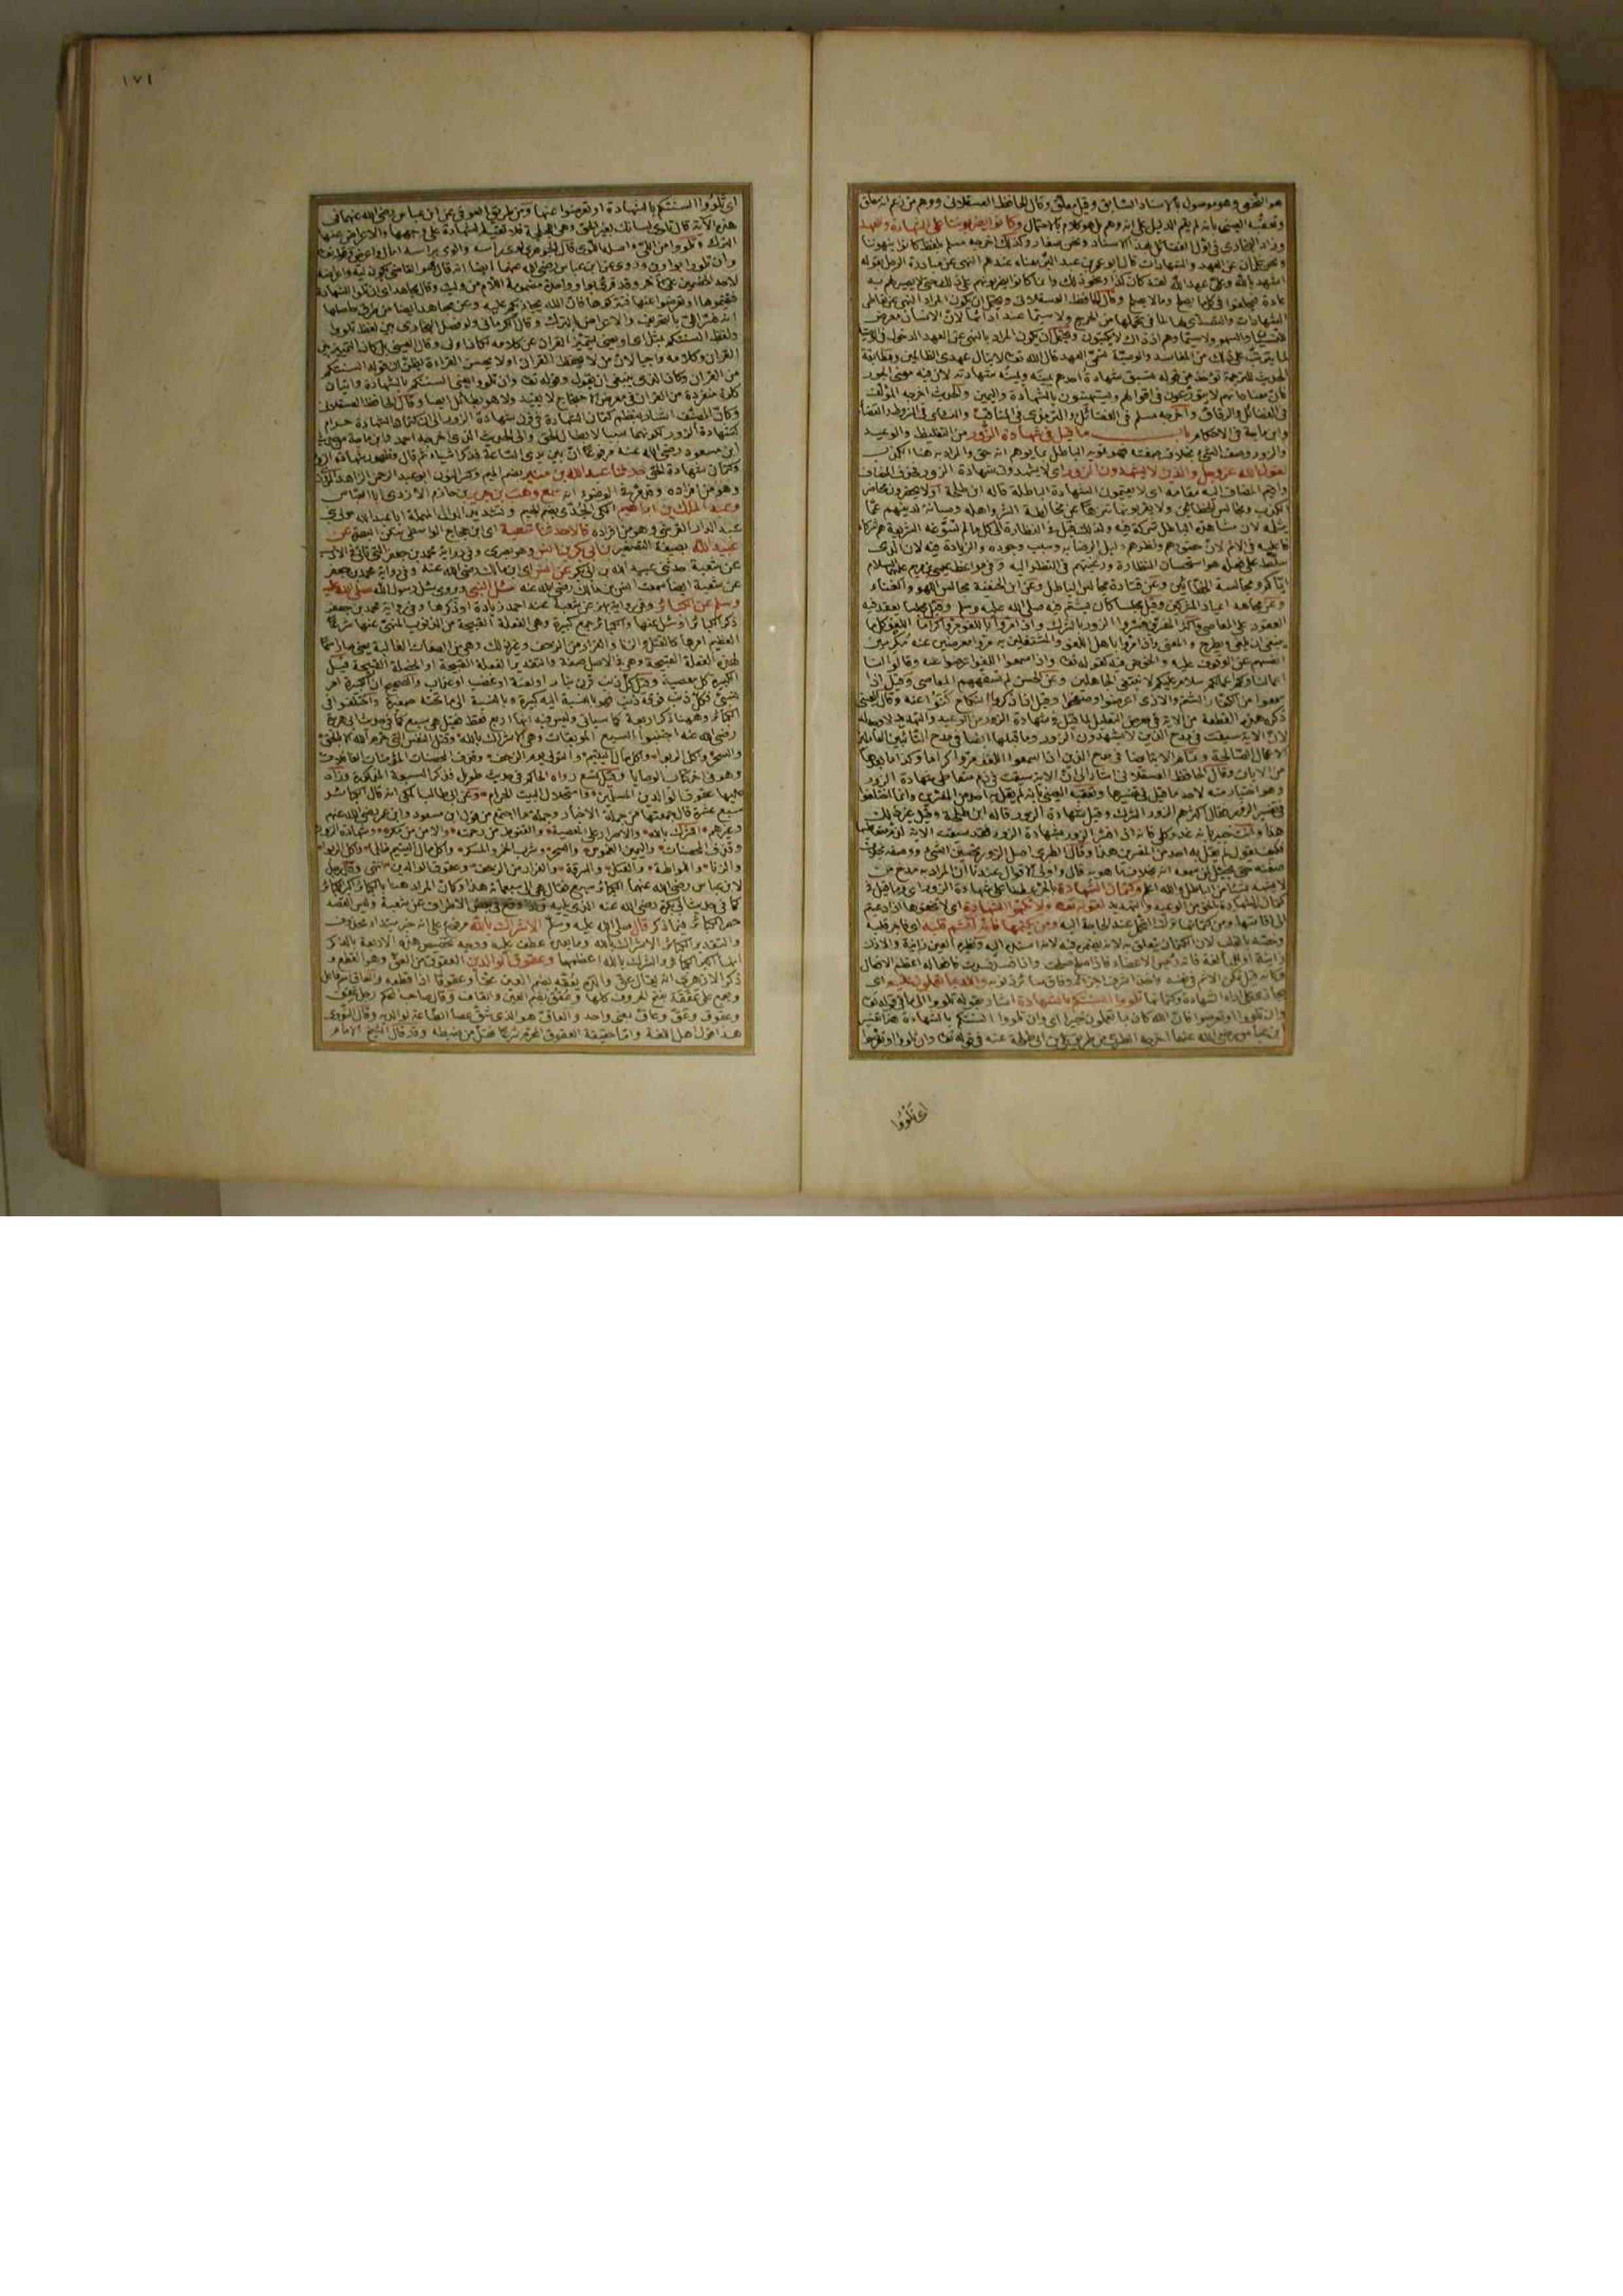 هو النخعي وهو موصول بالاسناد السابق وقيل معلق وقال الحافظ العسقلاني ووهم من زعم انه معلق
وتعقبه العيني بأنه لم يقم الدليل على انه وهم بل هو كلام بالاحتمال وكانوا يضربوننا على الشهادة والعهد
وزاد البخاري في الفضائل بهذا الاسناد ونحن صغار وكذلك اخرجه مسلم بلفظ كانوا ينهوننا
ونحن غلمان عن العهد والشهادات قال ابو عمر بن عبد البر معناه عندهم النهي عن مبادرة الرجل بقوله
اشهد بالله وعلي عهد الله لقد كان كذا ونحو ذلك وانما كانوا يضربونهم على ذلك حتى لا يصير لهم به
عادة فيحلفوا في كل ما يصلح وما لا يصلح وقال الحافظ العسقلاني ويحتمل ان يكون المراد النهي عن تعاطي
الشهادات والتصدي لها لما في تحملها من الحرج ولا سيما عند ادائها لان الانسان معرض
للنسيان والسهو ولا سيما وهم اذ ذاك لا يكتبون ويحتمل ان يكون المراد بالنهي عن العهد الدخول في الوصية
لما يترتب على ذلك من المفاسد والوصية تسمى العهد قال الله تعالى لا ينال عهدي الظالمين ومطابقة
الحديث للترجمة تؤخذ من قوله تسبق شهادة احدهم يمينه ويمينه شهادته لان فيه معنى الجور
في الفضائل والرقاق واخرجه مسلم في الفضائل والترمذي في المناقب والنسائي في الشروط والقضاء
وابن ماجة في الاحكام باب ما قيل في شهادة الزور من التغليظ والوعيد
والزور وصف الشيء بخلاف صفته فهو تمويه الباطل بما يوهم انه حق والمراد به هنا الكذب
لقول الله عز وجل والذين لا يشهدون الزور اي لا يشهدون شهادة الزور فحذف المضاف
واقيم المضاف اليه مقامه اي لا يقيمون الشهادة الباطلة قاله ابن طلحة اولا يحضرون محاضر
الكذب ومجالس الخطائين ولا يقربونها تنزها عن مخالطة الشر واهله وصيانة لدينهم عما
يثلمه لان مشاهدة الباطل شركة فيه ولذلك قيل في النظارة الى كل ما لم تسوغه الشريعة هم شركاء
فاعليه في الاثم لان حضورهم ونظرهم دليل الرضا به وسبب وجوده والزيادة فيه لان الذي
سلط على فعله هو استحسان النظارة ورغبتهم في النظر اليه وفي مواعظ عيسى بن مريم عليهما السلام
اياكم ومجالسة الخطائين وعن قتادة مجالس الباطل وعن ابن الحنفية مجالس اللهو والغناء
وعن مجاهد اعياد المشركين وقيل مجلسا كان يشتم فيه صلى الله عليه وسلم
انفسهم عن الوقوف عليه والخوض فيه كقوله تعالى واذا سمعوا اللغو اعرضوا عنه وقالوا لنا
اعمالنا ولكم اعمالكم سلام عليكم لا نبتغي الجاهلين وعن الحسن لم تسفههم المعاصي وقيل اذا
سمعوا من الكفار الشتم والاذى اعرضوا وصفحوا وقيل اذا ذكروا النكاح كنوا عنه وقال العيني
ذكر هذه القطعة من الآية في معرض التعليل لما قيل في شهادة الزور من الوعيد والتهديد لا وجه له
لان الآية سيقت في مدح الذين لا يشهدون الزور وما قبلها ايضا في مدح التائبين العاملين
الاعمال الصالحة وتمام الآية ايضا في مدح الذين اذا سمعوا اللغو مروا كراما وكذا ما بعدها
من الايات وقال الحافظ العسقلاني اشار الى ان الآية سيقت في ذم متعاطي شهادة الزور
وهو اختيار منه لاحد ما قيل في تفسيرها وتعقبه العيني بأنه لم يقل به احد من المفسرين وانما اختلفوا
في تفسير الزور فقال اكثرهم الزور الشرك وقيل شهادة الزور قاله ابن طلحة وقيل غير ذلك
فكيف يقول لم يقل به احد من المفسرين هذا وقال الطبري اصل الزور تحسين الشيء ووصفه بخلاف
صفته حتى يخيل لمن سمعه انه بخلاف ما هو به قال واولى الاقوال عندنا ان المراد به مدح من
لا يشهد شيئا من الباطل والله اعلم وكتمان الشهادة بالجر عطفا على شهادة الزور اي وما قيل في
كتمان الشهادة بالحق من الوعيد والتهديد لقوله تعالى ولا تكتموا الشهادة اي لا تخفوها اذا دعيتم
الى اقامتها ومن كتمانها ترك التحمل عند الحاجة اليه ومن يكتمها فانه آثم قلبه اي فاجر قلبه
وخصه بالقلب لان الكتمان يتعلق به لانه يضمر فيه لانه اسند اليه ونظيره العين زانية والاذن
زانية او للمبالغة فانه رئيس الاعضاء فاذا صلح صلحت واذا فسد فسدت وافعاله اعظم الافعال
وان تلووا او تعرضوا فان الله كان بما تعملون خبيرا اي وان تلووا السنتكم بالشهادة هذا تفسير
ابن عباس رضي الله عنهما اخرجه الطبري من طريق علي بن ابي طلحة عنه في قوله تعالى وان تلووا او تعرضوا
اي تلووا
١٧١
اي تلووا السنتكم بالشهادة او تعرضوا عنها ومن طريق العوفي عن ابن عباس رضي الله عنهما في
هذه الآية قال تلوي لسانك بغير الحق وهي اللجلجة فلا تقيم الشهادة على وجهها والاعراض عنها
لاحد الخصمين على الآخر وقد قرئ تلوا بواو واحدة مضمومة اللام من وليت وقال مجاهد اي ان تلوا الشهادة
فتقيموها او تعرضوا عنها فتتركوها فان الله يجازيكم عليه وعن مجاهد ايضا من طرق حاصلها
انه فسر اللي بالتحريف والاعراض بالترك وقال الكرماني ولو فصل البخاري بين لفظ تلووا
ولفظ السنتكم بمثل اي او يعني ليتميز القرآن عن كلامه لكان اولى وقال العيني بل كان التمييز بين
القرآن وكلامه واجبا لان من لا يحفظ القرآن او لا يحسن القراءة يظن ان قوله السنتكم
من القرآن وكان الذي ينبغي ان يقول وقوله تعالى وان تلووا يعني السنتكم بالشهادة واتيان
كلمة منفردة من القرآن في معرض الاحتجاج لا يفيد ولا هو بطائل ايضا وقال الحافظ العسقلاني
وكأن المصنف اشار بنظم كتمان الشهادة في قرن شهادة الزور الى ان كتمانها حرام
كشهادة الزور لكونهما سببا لابطال الحق والى الحديث الذي اخرجه احمد وابن ماجة من حديث
ابن مسعود رضي الله عنه مرفوعا ان بين يدي الساعة فذكر اشياء ثم قال وظهور شهادة الزور
وكتمان شهادة الحق حدثنا عبد الله بن منير بضم الميم وكسر النون ابو عبد الرحمن الزاهد المروزي
وهو من افراده وقد مر في الوضوء انه سمع وهب بن جرير بن حازم الازدي ابا العباس
وعبد الملك بن ابراهيم المكي الجدي بضم الجيم وتشديد الدال المهملة ابا عبد الله مولى بني
عبد الدار القرشي وهو من افراده قالا حدثنا شعبة اي ابن الحجاج الواسطي سكن البصرة عن
عبيد الله بصيغة التصغير بن ابي بكر بن انس وهو بصري وفي رواية محمد بن جعفر التي تأتي في الادب
عن شعبة حدثني عبيد الله بن ابي بكر عن انس اي ابن مالك رضي الله عنه وفي رواية محمد بن جعفر
عن شعبة ايضا سمعت انس بن مالك رضي الله عنه سئل النبي ويروى سئل رسول الله صلى الله عليه
وسلم عن الكبائر وفي رواية بهز عن شعبة عند احمد زيادة او ذكرها وفي رواية محمد بن جعفر
ذكر الكبائر او سئل عنها والكبائر جمع كبيرة وهي الفعلة القبيحة من الذنوب المنهي عنها شرعا
العظيم امرها كالقتل والزنا والفرار من الزحف وغير ذلك وهي من الصفات الغالبة يعني صار اسما
لهذه الفعلة القبيحة وهي في الاصل صفة والتقدير الفعلة القبيحة او الخصلة القبيحة قيل
الكبيرة كل معصية وقيل كل ذنب قرن بنار او لعنة او غضب او عذاب والصحيح ان الكبيرة امر
نسبي فكل ذنب فوقه ذنب فهو بالنسبة اليه كبيرة وبالنسبة الى ما تحته صغيرة واختلفوا في
الكبائر وههنا ذكر اربعة كما سيأتي وليس فيه انها اربع فقط فقيل هي سبع كما في حديث ابي هريرة
رضي الله عنه اجتنبوا السبع الموبقات وهي الاشراك بالله وقتل النفس التي حرم الله الا بالحق
والسحر واكل الربوا واكل مال اليتيم والتولي يوم الزحف وقذف المحصنات المؤمنات الغافلات
وقيل تسع رواه الحاكم في حديث طويل فذكر السبعة المذكورة وزاد
عليها عقوق الوالدين المسلمين واستحلال البيت الحرام وعن ابي طالب المكي انه قال الكبائر
سبع عشرة قال جمعتها من جملة الاخبار وجملة ما اجتمع من قول ابن مسعود وابن عمر رضي الله عنهم
وغيرهم الشرك بالله والاصرار على المعصية والقنوط من رحمته والامن من مكره وشهادة الزور
وقذف المحصنات واليمين الغموس والسحر وشرب الخمر والمسكر واكل مال اليتيم ظلما واكل الربوا
والزنا واللواطة والقتل والسرقة والفرار من الزحف وعقوق الوالدين انتهى وقال رجل
لابن عباس رضي الله عنهما الكبائر سبع فقال هي الى سبعمائة هذا وكان المراد هنا بالكبائر اكبر الكبائر
كما في حديث ابي بكرة رضي الله عنه الذي يليه وليس القصد
حصر الكبائر فيما ذكر قال صلى الله عليه وسلم الاشراك بالله مرفوع على انه خبر مبتدأ محذوف
والتقدير الكبائر الاشراك بالله وما بعده عطف عليه ووجه تخصيص هذه الاربعة بالذكر
انها اكبر الكبائر والشرك بالله اعظمها وعقوق الوالدين العقوق من العق وهو القطع
ذكر الازهري انه يقال عق والده يعقه بضم العين عقا وعقوقا اذا قطعه والعاق اسم فاعل
ويجمع على عققة بفتح الحروف كلها وعقق بضم العين والقاف وقال صاحب المحكم رجل عقق
وعقوق وعق وعاق بمعنى واحد والعاق هو الذي شق عصا الطاعة لوالديه وقال النووي
هذا قول اهل اللغة واما حقيقة العقوق المحرم شرعا فقل من ضبطه وقد قال الشيخ الامام